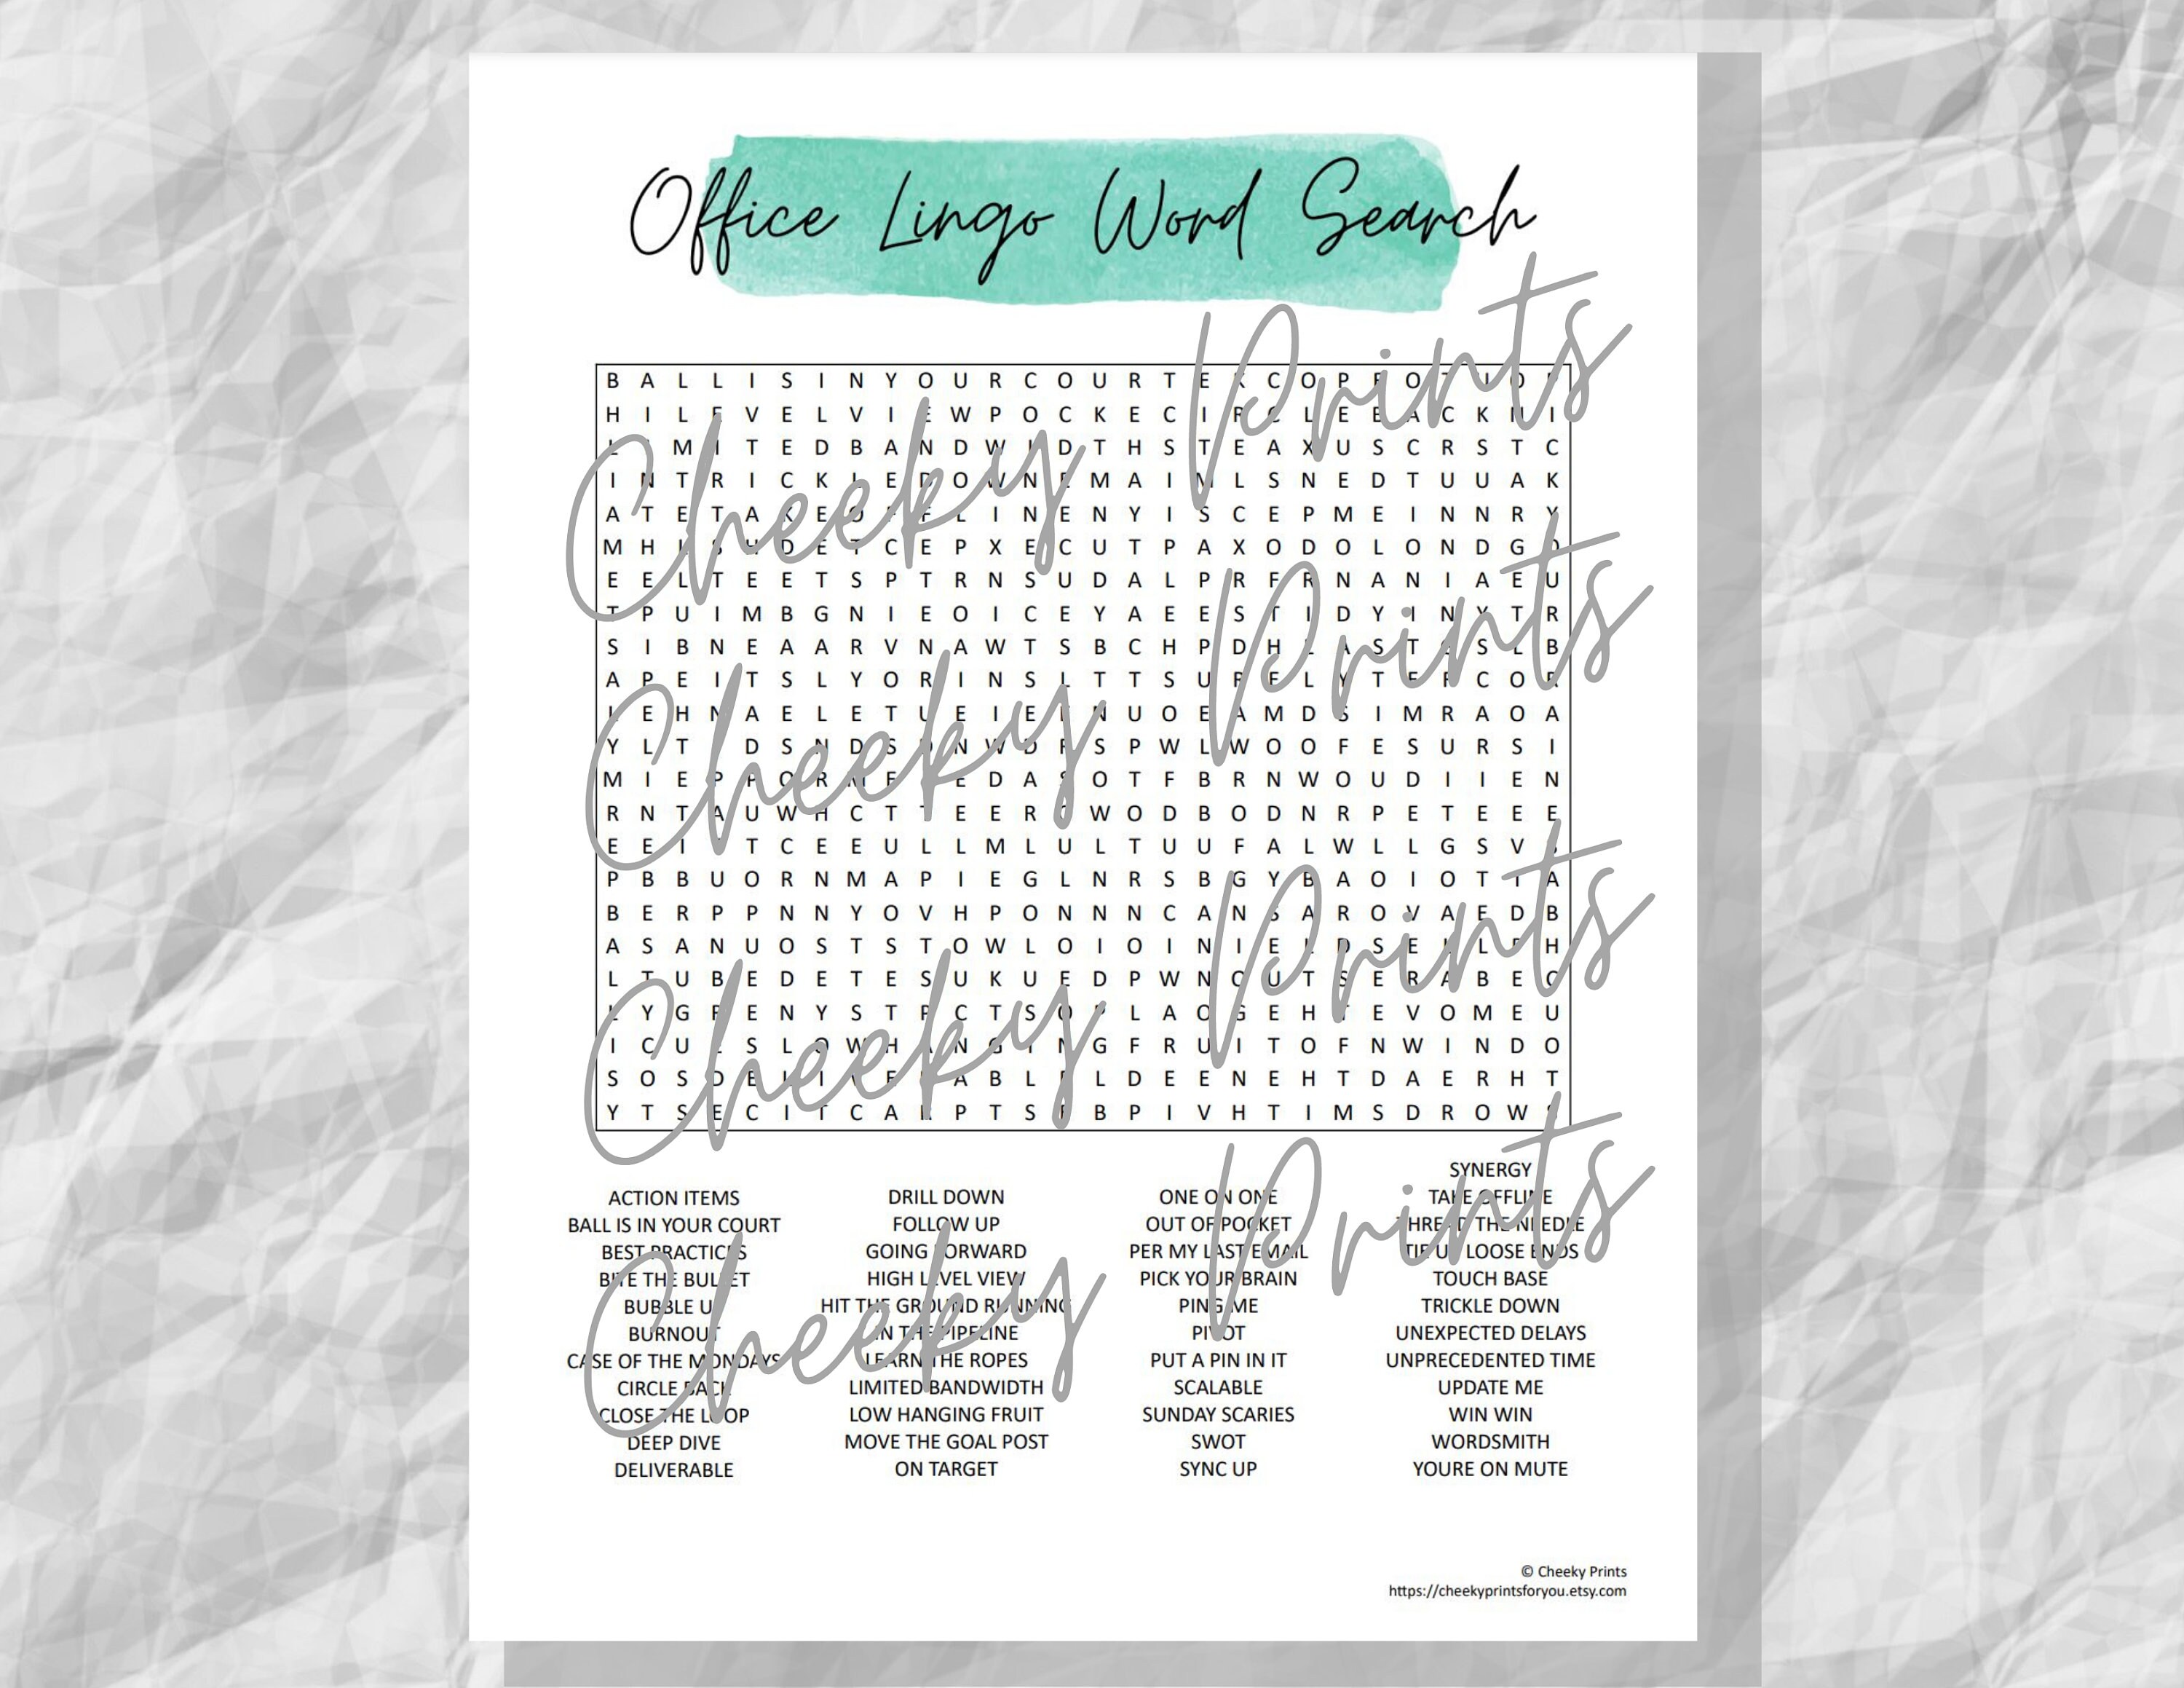 Office Lingo Word Search
B A L L I S I N Y O U R C O U R T E K C O P F O T U O P
H I L E V E L V I E W P O C K E C I R C L E B A C K N I
L I M I T E D B A N D W I D T H S T E A X U S C R S T C
I N T R I C K L E D O W N E M A I M L S N E D T U U A K
A T E T A K E O F F L I N E N Y I S C E P M E I N N R Y
M H L S Y D E T C E P X E C U T P A X O D O L O N D G O
E E L T E E T S P T R N S U D A L P R F R N A N I A E U
T P U I M B G N I E O I C E Y A E E S T I D Y I N Y T R
S I B N E A A R V N A W T S B C H P D H L A S T G S L B
A P E I T S L Y O R I N S L T T S U R E L Y T E R C O R
L E H N A E L E T U E I E E N U O E A M D S I M R A O A
Y L T D S N D S O N W D R S P W L W O O F E S U R S I
M I E P P O R M E E D A S O T F B R N W O U D I I E N
R N T A U W H C T T E E R O W O D B O D N R P E T E E E
E E I T C E E U L L M L U L T U U F A L W L L G S V S
P B B U O R N M A P I E G L N R S B G Y B A O I O T I A
B E R P P N N Y O V H P O N N N C A N S A R O V A E D B
A S A N U O S T S T O W L O I O I N I E L D S E L L P H
L T U B E D E T E S U K U E D P W N O U T S E R A B E C
L Y G R E N Y S T R C T S O P L A O G E H T E V O M E U
I C U L S L O W H A N G I N G F R U I T O F N W I N D O
S O S D E L I V E R A B L E L D E E N E H T D A E R H T
Y T S E C I T C A R P T S E B P I V H T I M S D R O W S
ACTION ITEMS
BALL IS IN YOUR COURT
BEST PRACTICES
BITE THE BULLET
BUBBLE UP
BURNOUT
CASE OF THE MONDAYS
CIRCLE BACK
CLOSE THE LOOP
DEEP DIVE
DELIVERABLE
DRILL DOWN
FOLLOW UP
GOING FORWARD
HIGH LEVEL VIEW
HIT THE GROUND RUNNING
IN THE PIPELINE
LEARN THE ROPES
LIMITED BANDWIDTH
LOW HANGING FRUIT
MOVE THE GOAL POST
ON TARGET
ONE ON ONE
OUT OF POCKET
PER MY LAST EMAIL
PICK YOUR BRAIN
PING ME
PIVOT
PUT A PIN IN IT
SCALABLE
SUNDAY SCARIES
SWOT
SYNC UP
SYNERGY
TAKE OFFLINE
THREAD THE NEEDLE
TIE UP LOOSE ENDS
TOUCH BASE
TRICKLE DOWN
UNEXPECTED DELAYS
UNPRECEDENTED TIME
UPDATE ME
WIN WIN
WORDSMITH
YOURE ON MUTE
Cheeky Prints
Cheeky Prints
Cheeky Prints
Cheeky Prints
© Cheeky Prints
https://cheekyprintsforyou.etsy.com